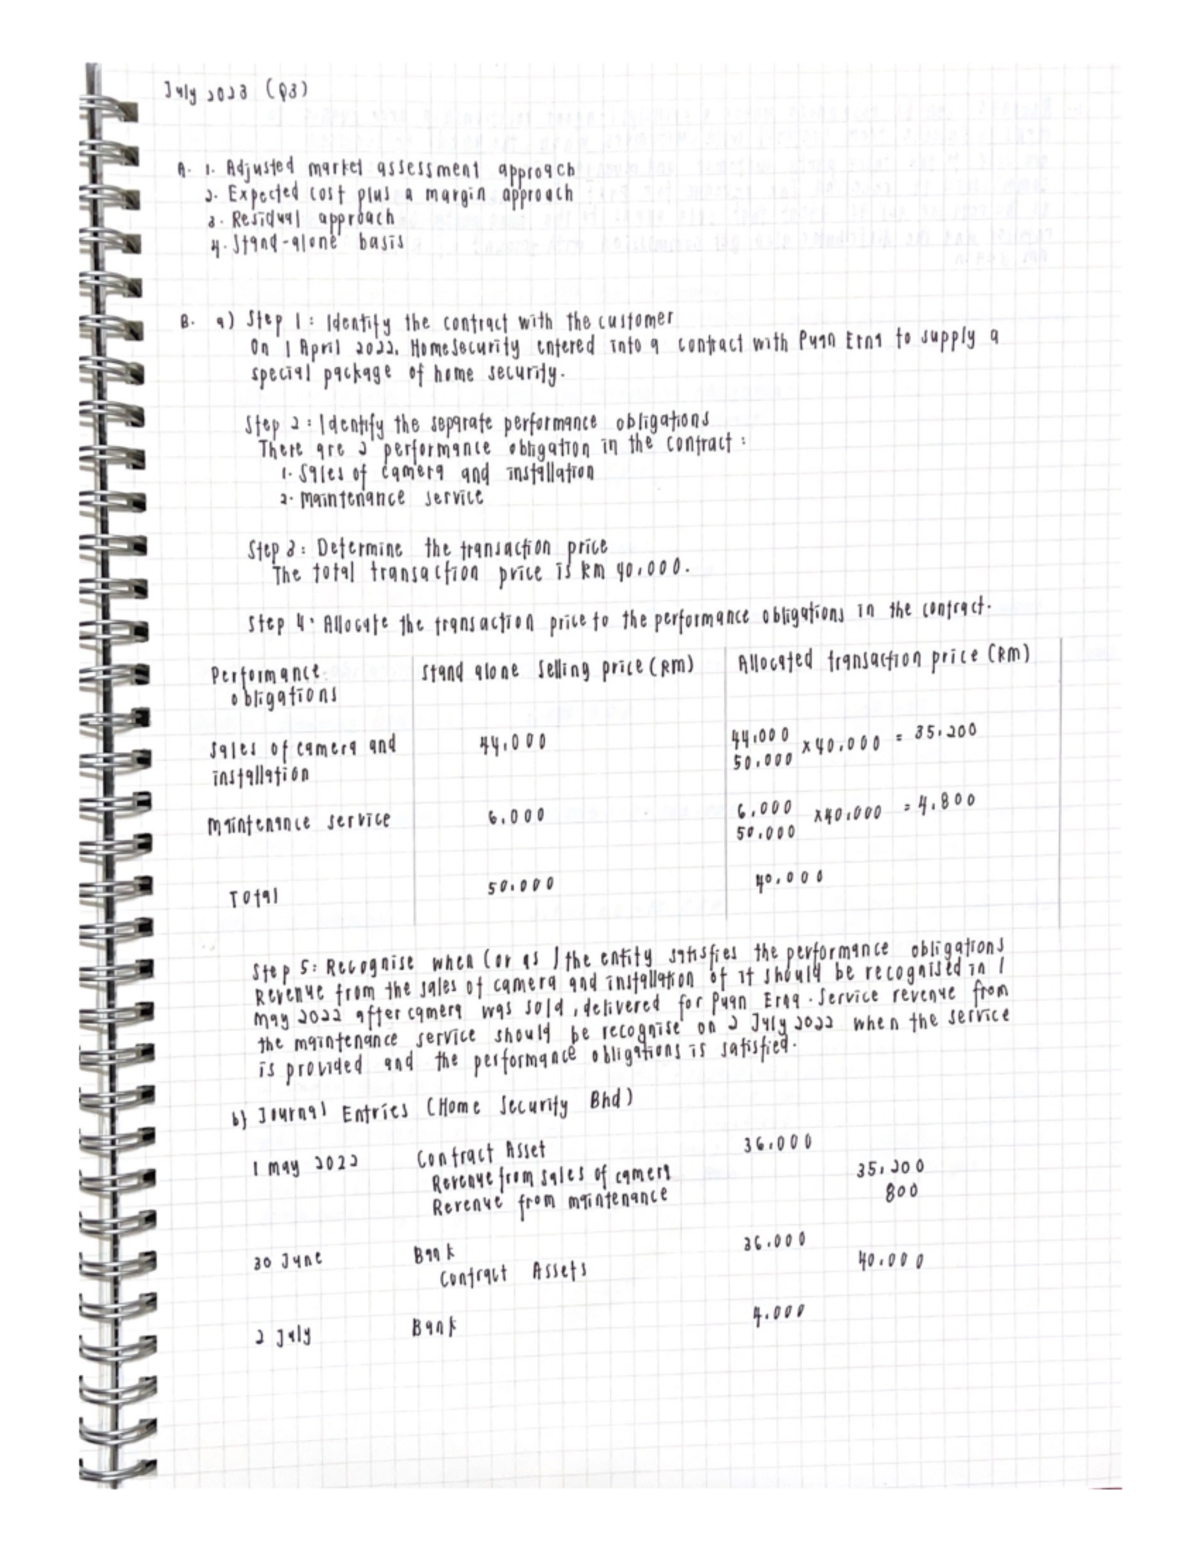 July 2023 (Q3)
A. 1. Adjusted market assessment approach
2. Expected cost plus a margin approach
3. Residual approach
4. Stand-alone basis
B. a) Step 1: Identify the contract with the customer
On 1 April 2022, HomeSecurity entered into a contract with Puan Erna to supply a
special package of home security.
Step 2: Identify the separate performance obligations
There are 2 performance obligation in the contract:
1. Sales of camera and installation
2. Maintenance service
Step 3: Determine the transaction price
The total transaction price is RM 40,000.
Step 4: Allocate the transaction price to the performance obligations in the contract.
Performance obligations | Stand alone selling price (RM) | Allocated transaction price (RM)
Sales of camera and installation | 44,000 | 44,000/50,000 x 40,000 = 35,200
Maintenance service | 6,000 | 6,000/50,000 x 40,000 = 4,800
Total | 50,000 | 40,000
Step 5: Recognise when (or as) the entity satisfies the performance obligations
Revenue from the sales of camera and installation of it should be recognised in 1
May 2022 after camera was sold, delivered for Puan Erna. Service revenue from
the maintenance service should be recognise on 2 July 2022 when the service
is provided and the performance obligations is satisfied.
b) Journal Entries (Home Security Bhd)
1 May 2022 Contract Asset 36,000
Revenue from sales of camera 35,200
Revenue from maintenance 800
30 June Bank 36,000
Contract Assets 40,000
2 July Bank 4,000